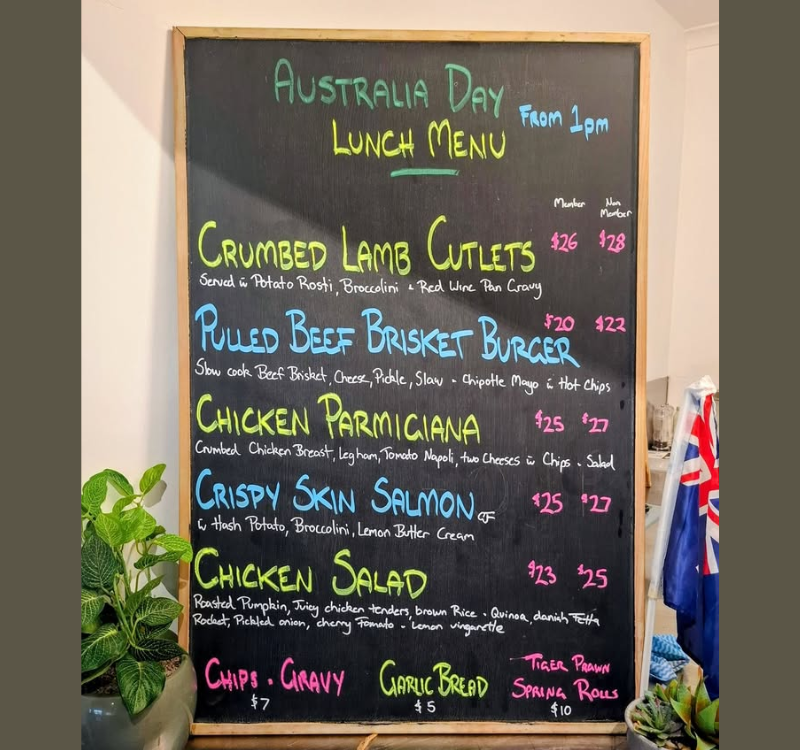 AUSTRALIA DAY
FROM 1pm
LUNCH MENU
Member Non Member
CRUMBED LAMB CUTLETS $26 $28
Served w Potato Rosti, Broccolini + Red Wine Pan Gravy
PULLED BEEF BRISKET BURGER $20 $22
Slow cook Beef Brisket, Cheese, Pickle, Slaw + Chipotle Mayo w Hot Chips
CHICKEN PARMIGIANA $25 $27
Crumbed Chicken Breast, Legham, Tomato Napoli, two Cheeses w Chips + Salad
CRISPY SKIN SALMON GF $25 $27
w Hash Potato, Broccolini, Lemon Butter Cream
CHICKEN SALAD $23 $25
Roasted Pumpkin, Juicy chicken tenders, brown Rice + Quinoa, danish Fetta
Rocket, Pickled onion, cherry Tomato + Lemon vingarette
CHIPS + GRAVY
$7
GARLIC BREAD
$5
TIGER PRAWN
SPRING ROLLS
$10